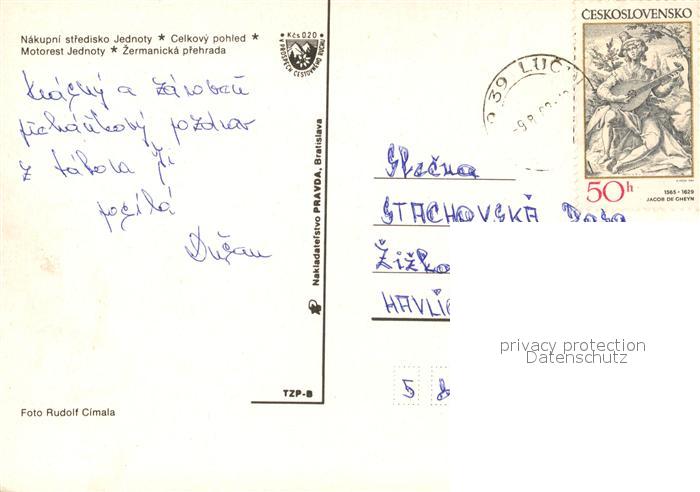 Nákupní středisko Jednoty ★ Celkový pohled ★
Motorest Jednoty ★ Žermanická přehrada
Kčs 0.20
V PROSPĚCH CESTOVNÍHO RUCHU
Krásný a zároveň
pozdrav
z tábora
posílá
Dušan
Nakladateľstvo PRAVDA, Bratislava
TZP-B
Foto Rudolf Címala
739 39 LUČ
ČESKOSLOVENSKO
50h
1565 - 1629
JACOB DE GHEYN
Slečna
STACHOVSKÁ
Žižko
HAVLÍ
5 8
privacy protection
Datenschutz